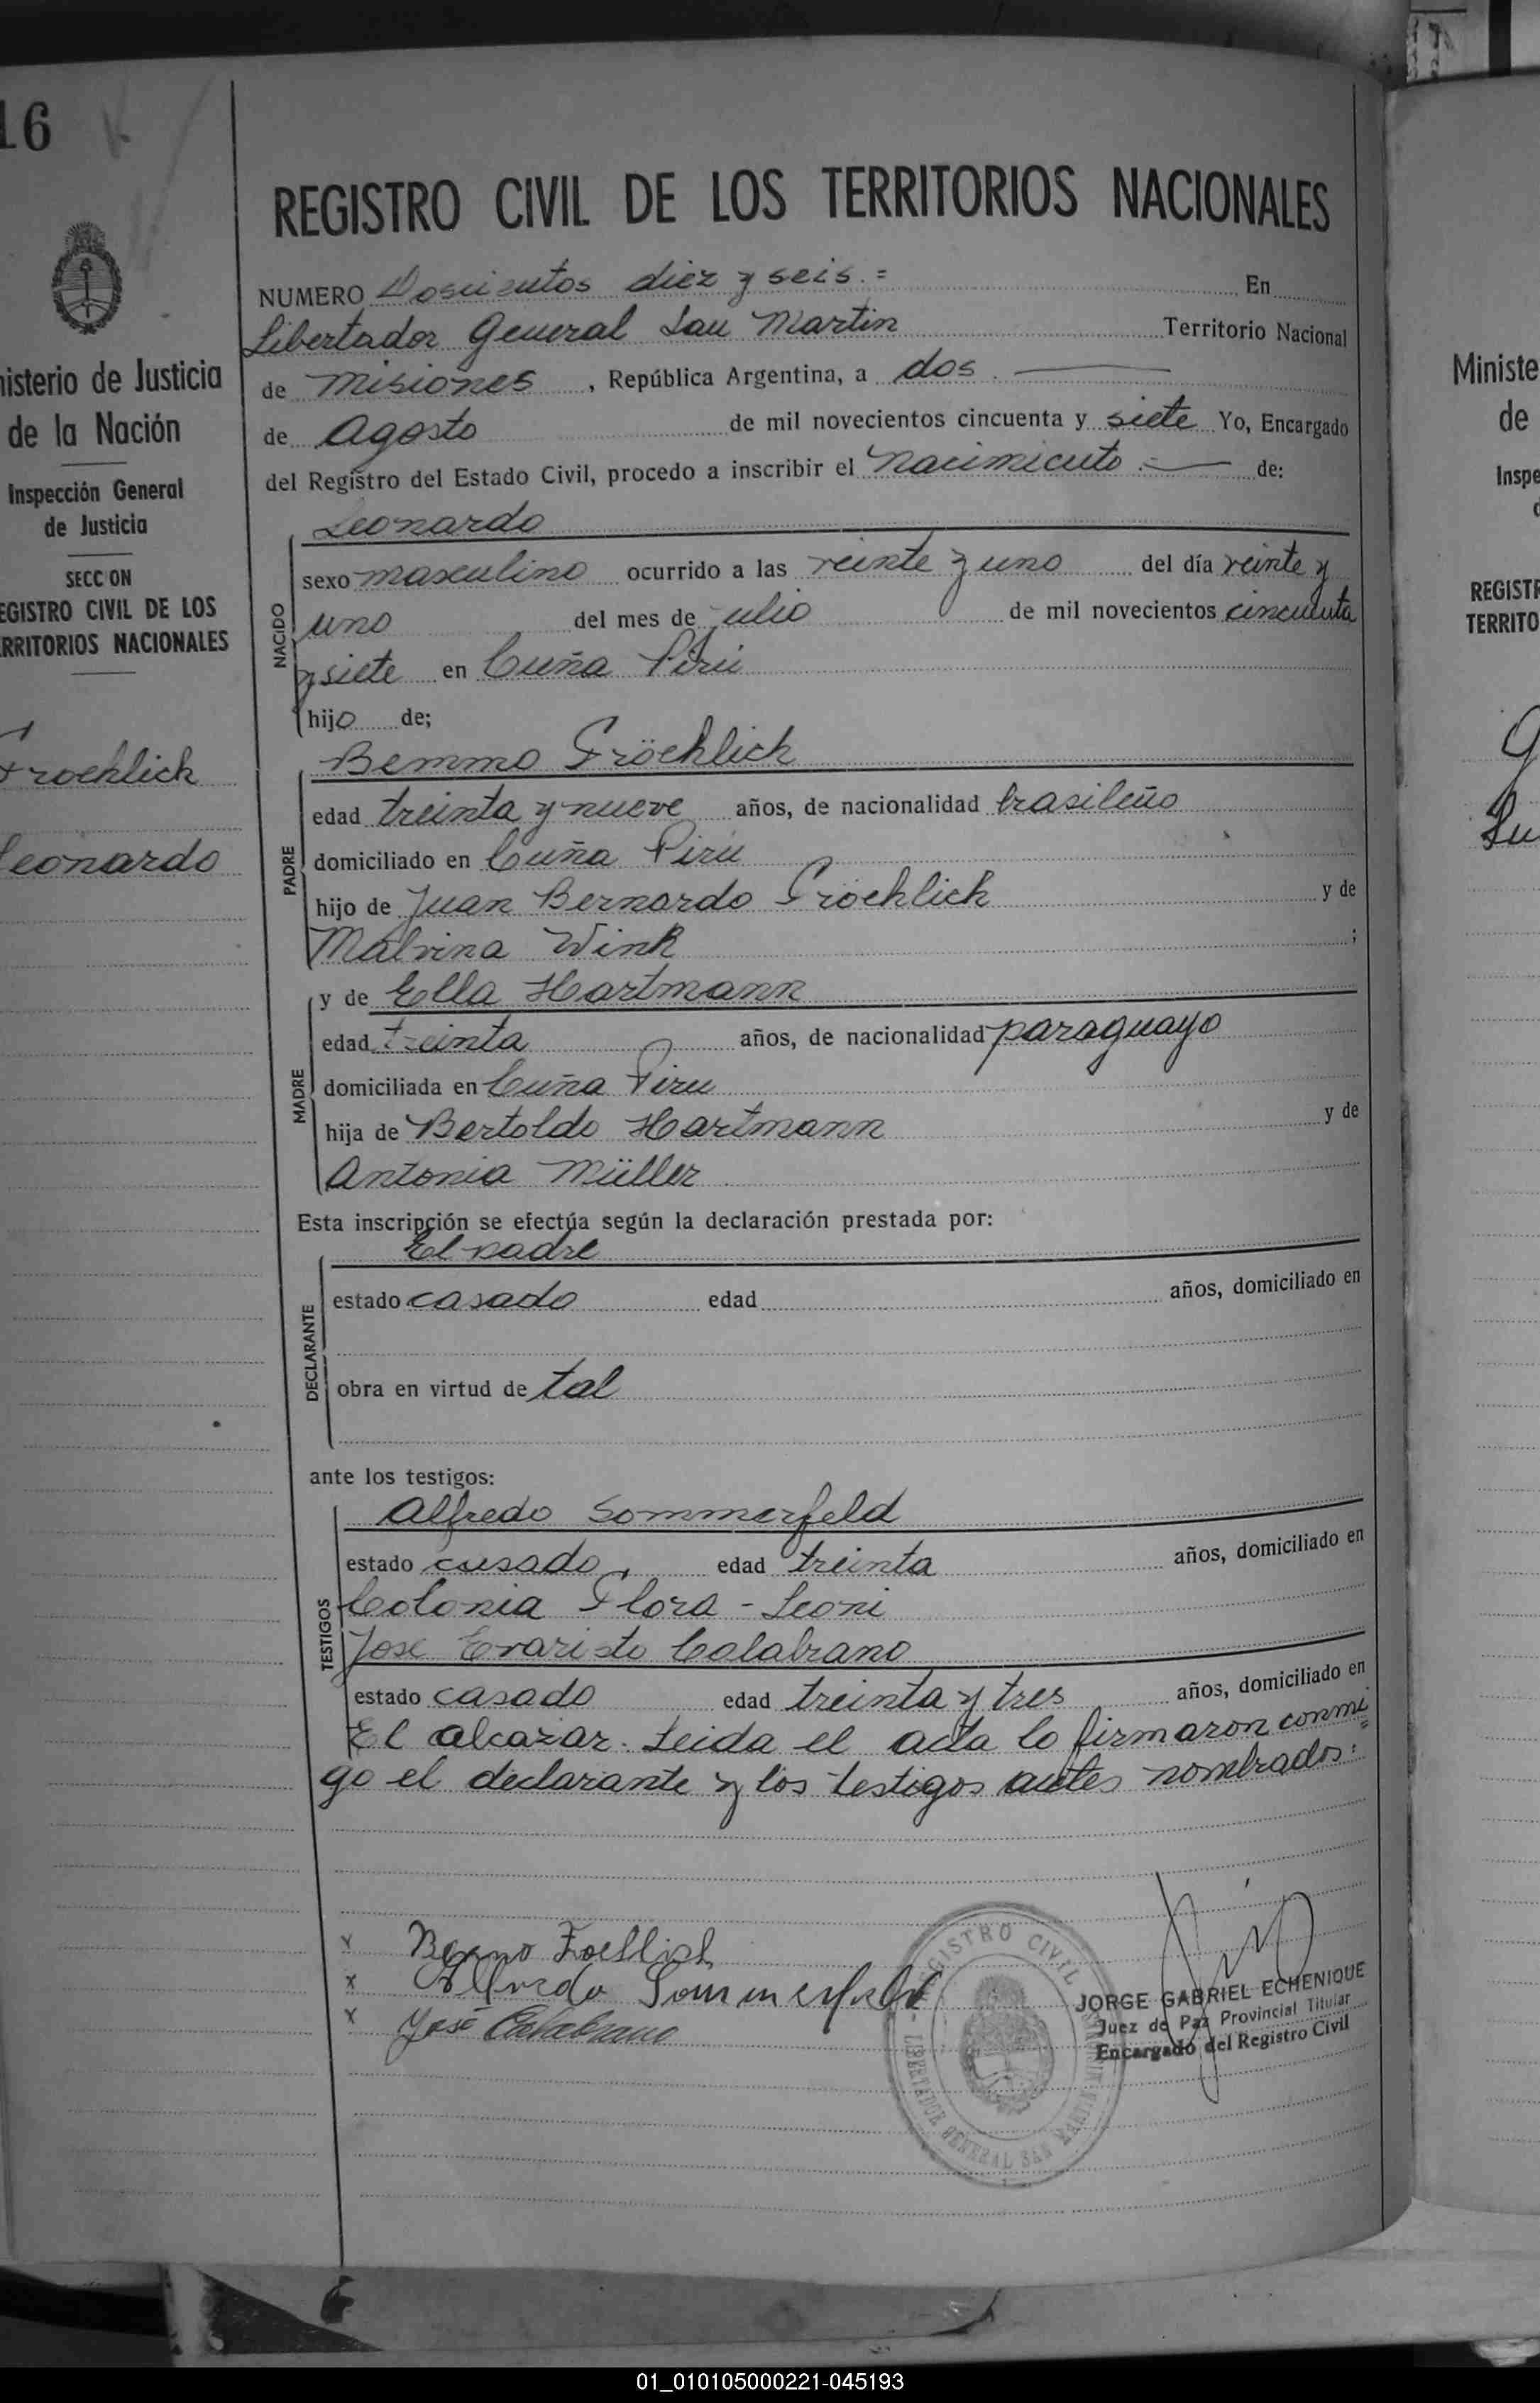 16
nisterio de Justicia
de la Nación
Inspección General
de Justicia
SECCION
EGISTRO CIVIL DE LOS
RRITORIOS NACIONALES
Froehlich
Leonardo
REGISTRO CIVIL DE LOS TERRITORIOS NACIONALES
NUMERO Doscientos diez y seis.= En
Libertador General San Martin Territorio Nacional
de Misiones, República Argentina, a dos
de Agosto de mil novecientos cincuenta y siete Yo, Encargado
del Registro del Estado Civil, procedo a inscribir el Nacimiento.- de:
Leonardo
NACIDO
sexo masculino ocurrido a las veinte y uno del día veinte y
uno del mes de julio de mil novecientos cincuenta
y siete en Cuña Pirú
hijo de;
Bemmo Fröehlich
PADRE
edad treinta y nueve años, de nacionalidad brasileño
domiciliado en Cuña Pirú
hijo de Juan Bernardo Fröehlich y de
Malvina Wink ;
y de Ella Hartmann
MADRE
edad treinta años, de nacionalidad paraguayo
domiciliada en Cuña Piru
hija de Bertoldo Hartmann y de
Antonia Müller
Esta inscripción se efectúa según la declaración prestada por:
El padre
DECLARANTE
estado casado edad años, domiciliado en
obra en virtud de tal
ante los testigos:
Alfredo Sommerfeld
TESTIGOS
estado casado, edad treinta años, domiciliado en
Colonia Flora - Leoni
Jose Evaristo Calabrano
estado casado edad treinta y tres años, domiciliado en
El alcazar. Leida el acta lo firmaron conmi=
go el declarante y los testigos antes nombrados:
x Benno Froehlich
x Alfredo Sommerfeld
x José Calabrano
REGISTRO CIVIL
LIBERTADOR GENERAL SAN MARTIN
JORGE GABRIEL ECHENIQUE
Juez de Paz Provincial Titular
Encargado del Registro Civil
Ministe
de
Inspe
REGISTR
TERRITO
01_010105000221-045193